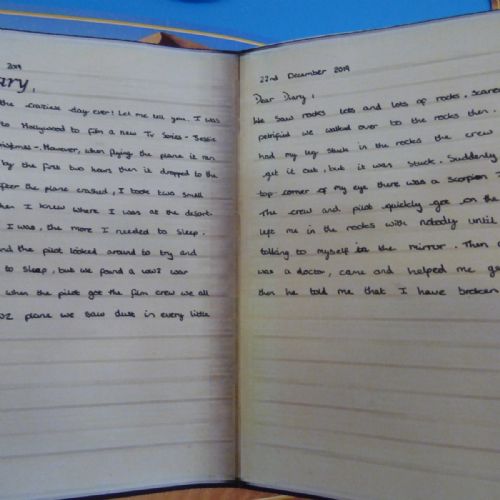 2019
ary,
the craziest day ever! Let me tell you. I was
to Hollywood to film a new Tv Series - Jessie
ristmas -. However, when flying the plane it ran
by the first two hours then it dropped to the
fter the plane crashed, I took two small
hen I knew where I was at the desert.
I was, the more I needed to sleep.
nd the pilot looked around to try and
to sleep, but we found a ww2 war
when the pilot got the film crew we all
w2 plane we saw dust in every little
22nd December 2019
Dear Diary,
We saw rocks lots and lots of rocks. Scared
petrified we walked over to the rocks then
had my leg stuck in the rocks the crew
get it out, but it was stuck. Suddenly
top corner of my eye there was a scorpion
The crew and pilot quickly got on the
left me in the rocks with nobody until
talking to myself in the mirror. Then
was a doctor, came and helped me ge
then he told me that I have broken